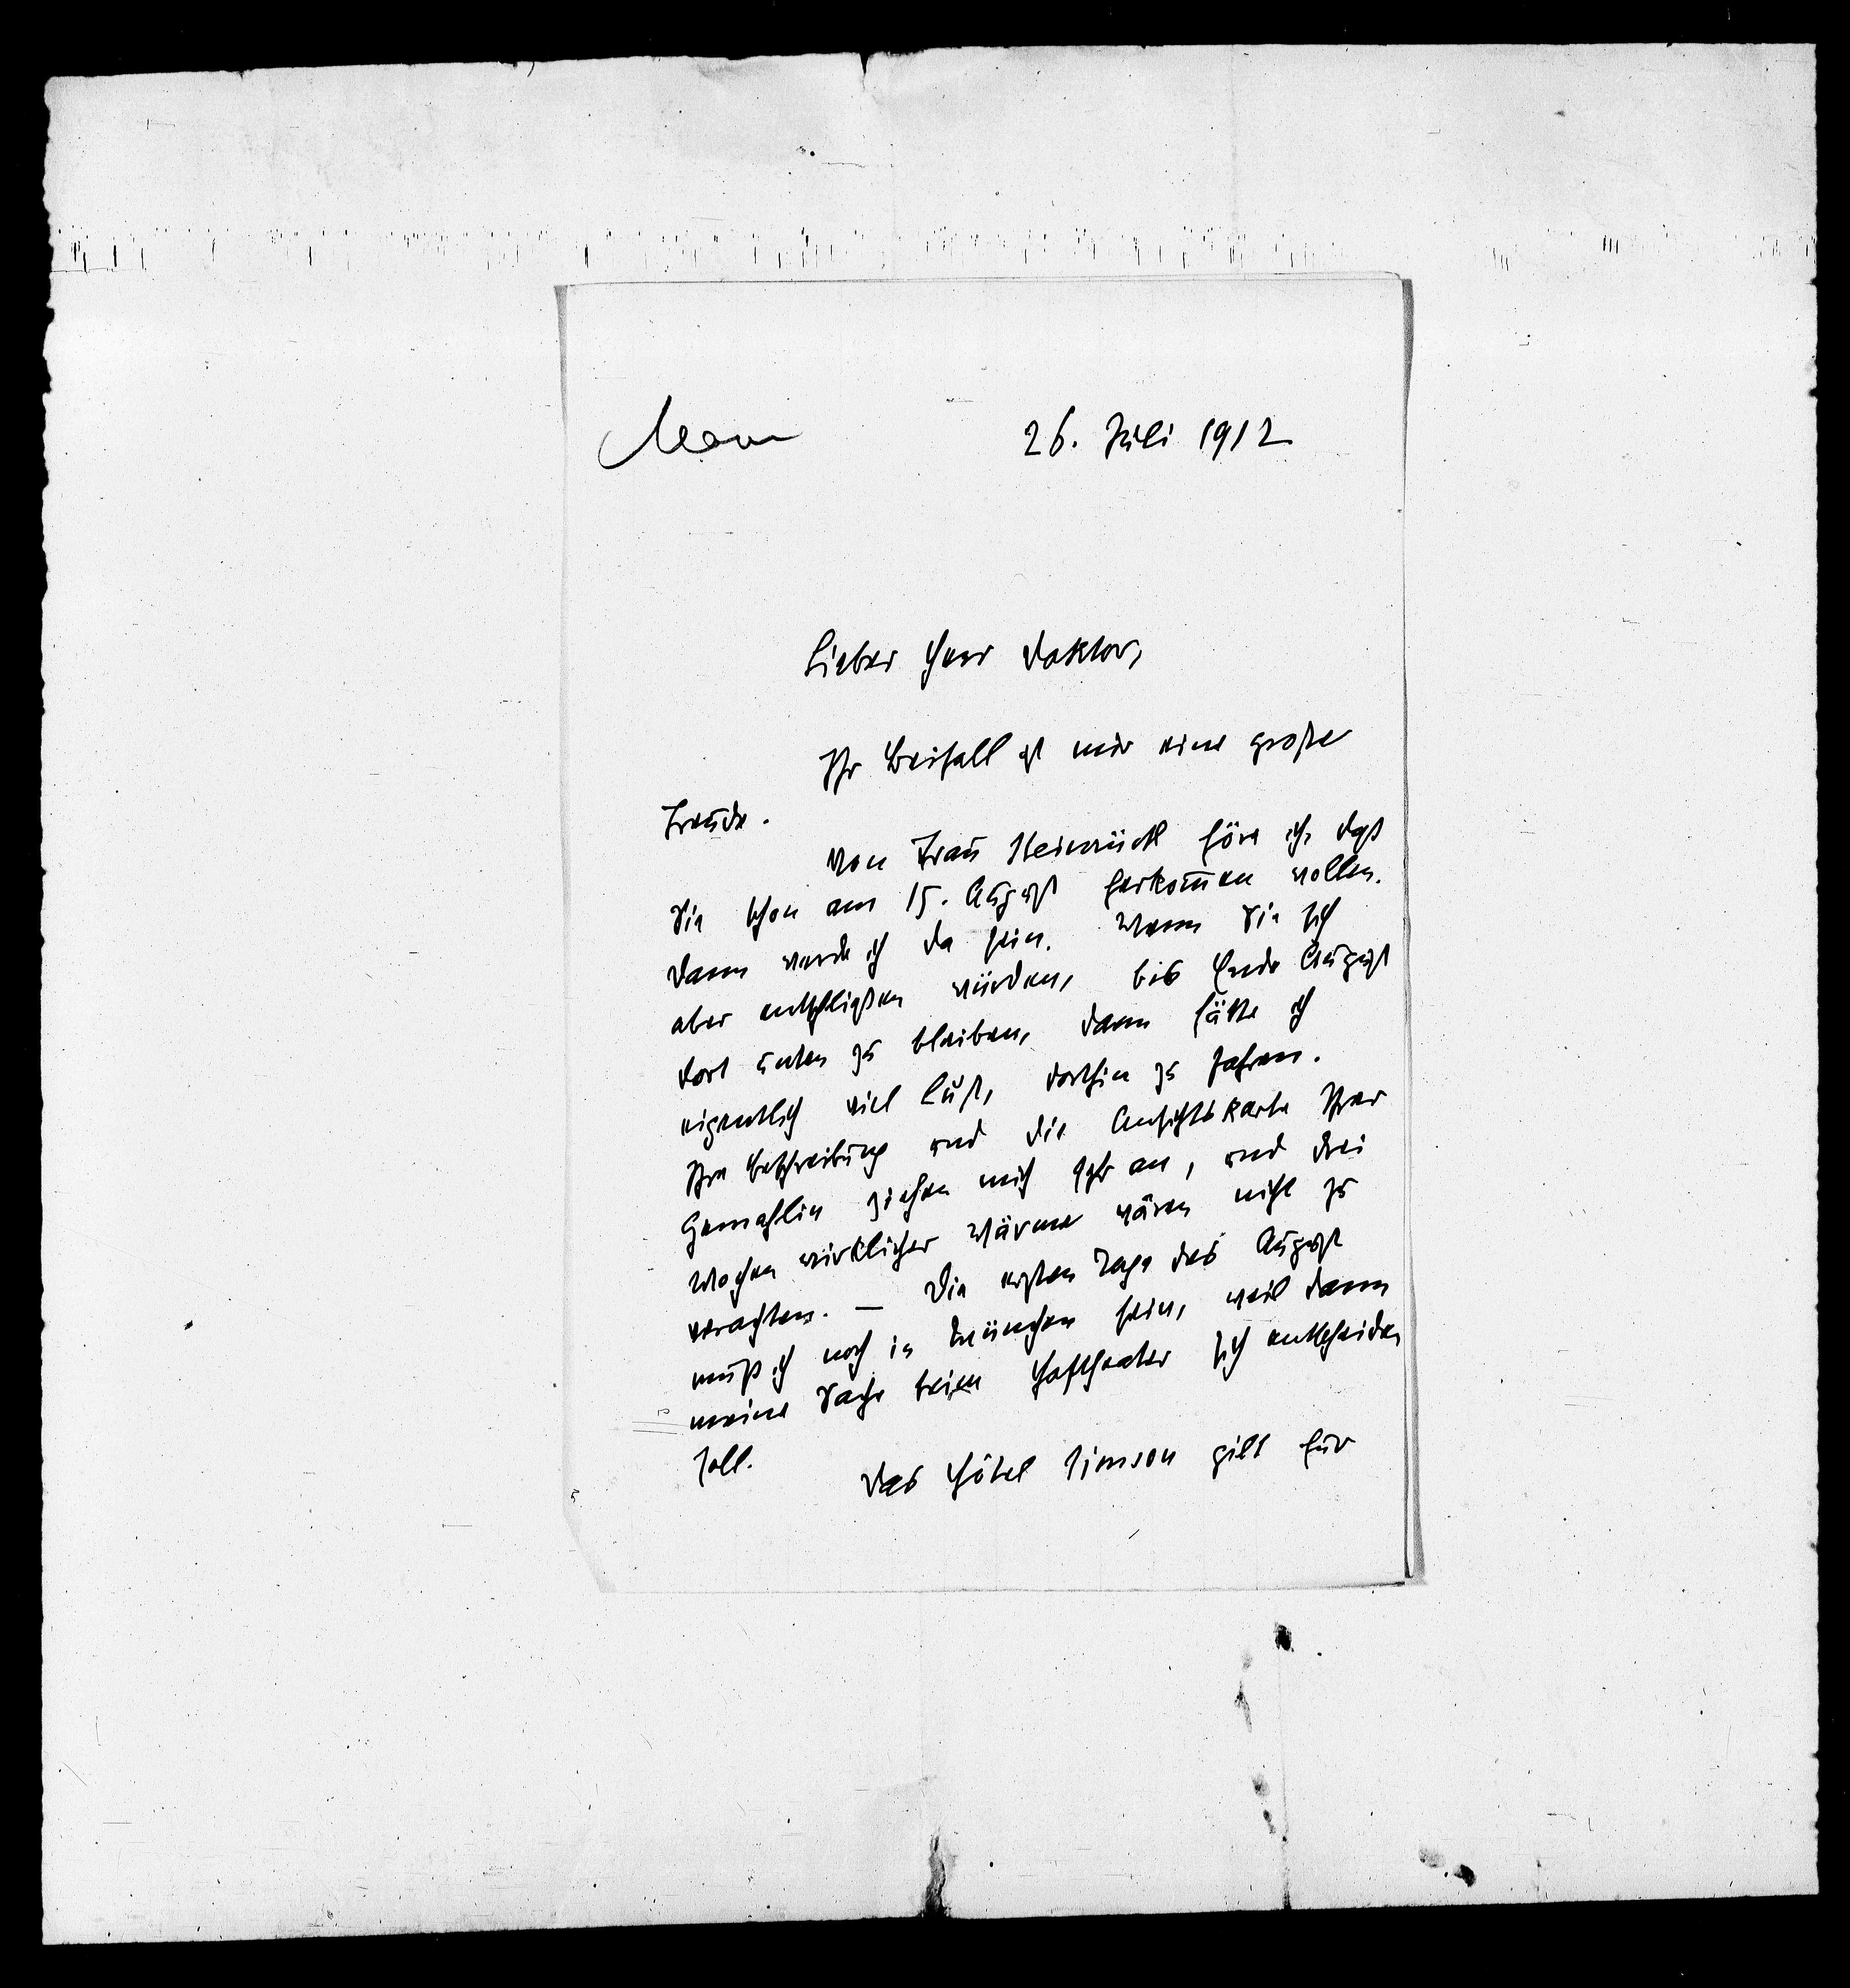 Mann
26. Juli 1912
Lieber Herr Doktor,
Ihr Beifall ist mir eine große
Freude.
Von Frau Steinrück höre ich, daß
Sie schon am 15. August herkom̅en wollen.
Dann werde ich da sein. Wenn Sie sich
aber entschließen würden, bis Ende August
dort unten zu bleiben, dann hätte ich
eigentlich viel Lust, dorthin zu fahren.
Ihre Beschreibung und die Ansichtskarte Ihrer
Gemahlin ziehen mich sehr an, und drei
Wochen wirklicher Wärme wären nicht zu
verachten. – Die ersten Tage des August
muß ich noch in München sein, weil dann
meine Sache beim Hoftheater sich entscheiden
soll.
Das Hôtel Simson gilt für